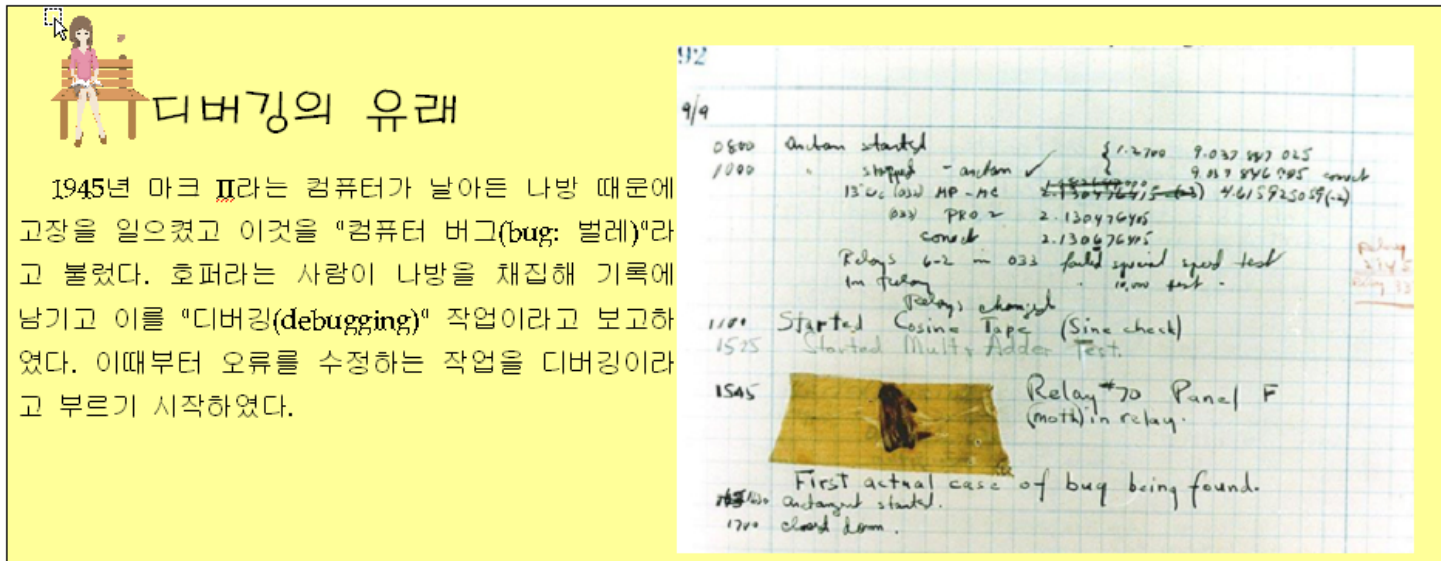 디버깅의 유래
1945년 마크 Ⅱ라는 컴퓨터가 날아든 나방 때문에
고장을 일으켰고 이것을 "컴퓨터 버그(bug: 벌레)"라
고 불렀다. 호퍼라는 사람이 나방을 채집해 기록에
남기고 이를 "디버깅(debugging)" 작업이라고 보고하
였다. 이때부터 오류를 수정하는 작업을 디버깅이라
고 부르기 시작하였다.
92
9/9
0800 Antan started { 1.2700 9.037 847 025
1000 " stopped - antan ✓ 9.037 846 995 correct
13"uc (032) MP-MC 4.615925059(-2)
(033) PRO 2 2.130476415
correct 2.130676415
Relays 6-2 in 033 failed special speed test
in relay " 10,000 test .
Relays changed
1100 Started Cosine Tape (Sine check)
1525 Started Mult+Adder Test.
1545 Relay #70 Panel F
(moth) in relay.
First actual case of bug being found.
antangent started.
1700 closed down.